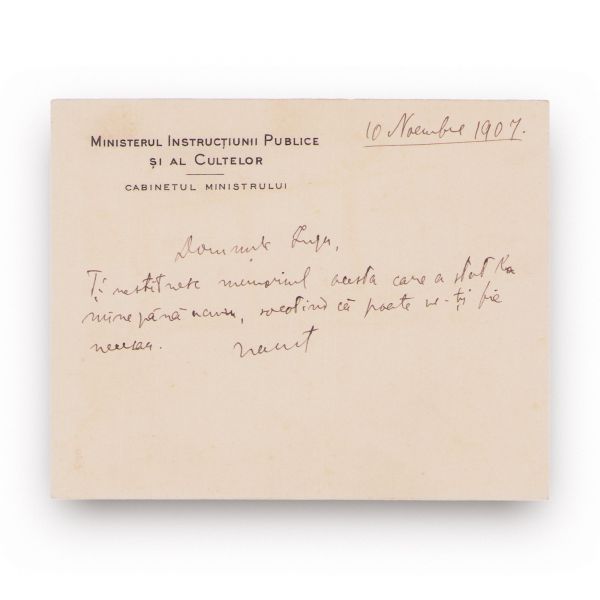 MINISTERUL INSTRUCȚIUNII PUBLICE
ȘI AL CULTELOR
CABINETUL MINISTRULUI
10 Noembrie 1907.
Domnule
Ți restituesc memoriul acesta care a stat la
mine până acum, socotind că poate ne-ți fie
necesar.